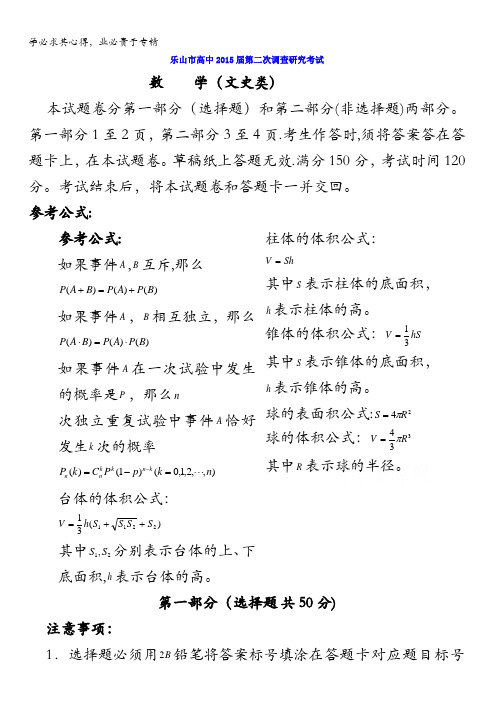 学必求其心得，业必贵于专精
乐山市高中2015届第二次调查研究考试
数 学（文史类）
本试题卷分第一部分（选择题）和第二部分(非选择题)两部分。
第一部分1至2页，第二部分3至4页.考生作答时,须将答案答在答
题卡上，在本试题卷。草稿纸上答题无效.满分150分，考试时间120
分。考试结束后，将本试题卷和答题卡一并交回。
参考公式:
参考公式:
如果事件A,B互斥,那么
P(A+B)=P(A)+P(B)
如果事件A，B相互独立，那么
P(A·B)=P(A)·P(B)
如果事件A在一次试验中发生
的概率是P，那么n
次独立重复试验中事件A恰好
发生k次的概率
P_n(k)=C_n^k P^k(1-p)^{n-k}(k=0,1,2,⋯,n)
台体的体积公式:
V=\frac{1}{3}h(S_1+\sqrt{S_1S_2}+S_2)
其中S_1,S_2分别表示台体的上、下
底面积,h表示台体的高。
柱体的体积公式:
V=Sh
其中S表示柱体的底面积，
h表示柱体的高。
锥体的体积公式：V=\frac{1}{3}hS
其中S表示锥体的底面积，
h表示锥体的高。
球的表面积公式:S=4πR^2
球的体积公式：V=\frac{4}{3}πR^3
其中R表示球的半径。
第一部分（选择题 共50分)
注意事项：
1．选择题必须用2B铅笔将答案标号填涂在答题卡对应题目标号